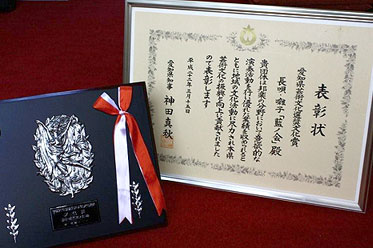 表彰状
愛知県芸術文化選奨文化賞
長唄・囃子「藍ノ会」殿
貴団体は邦楽の分野において意欲的な
演奏活動を行い優れた業績を収められると
ともに地域の文化活動に尽力され本県
芸術文化の振興と向上に貢献されました
ので表彰します
平成二十三年三月十五日
愛知県知事 神田真秋